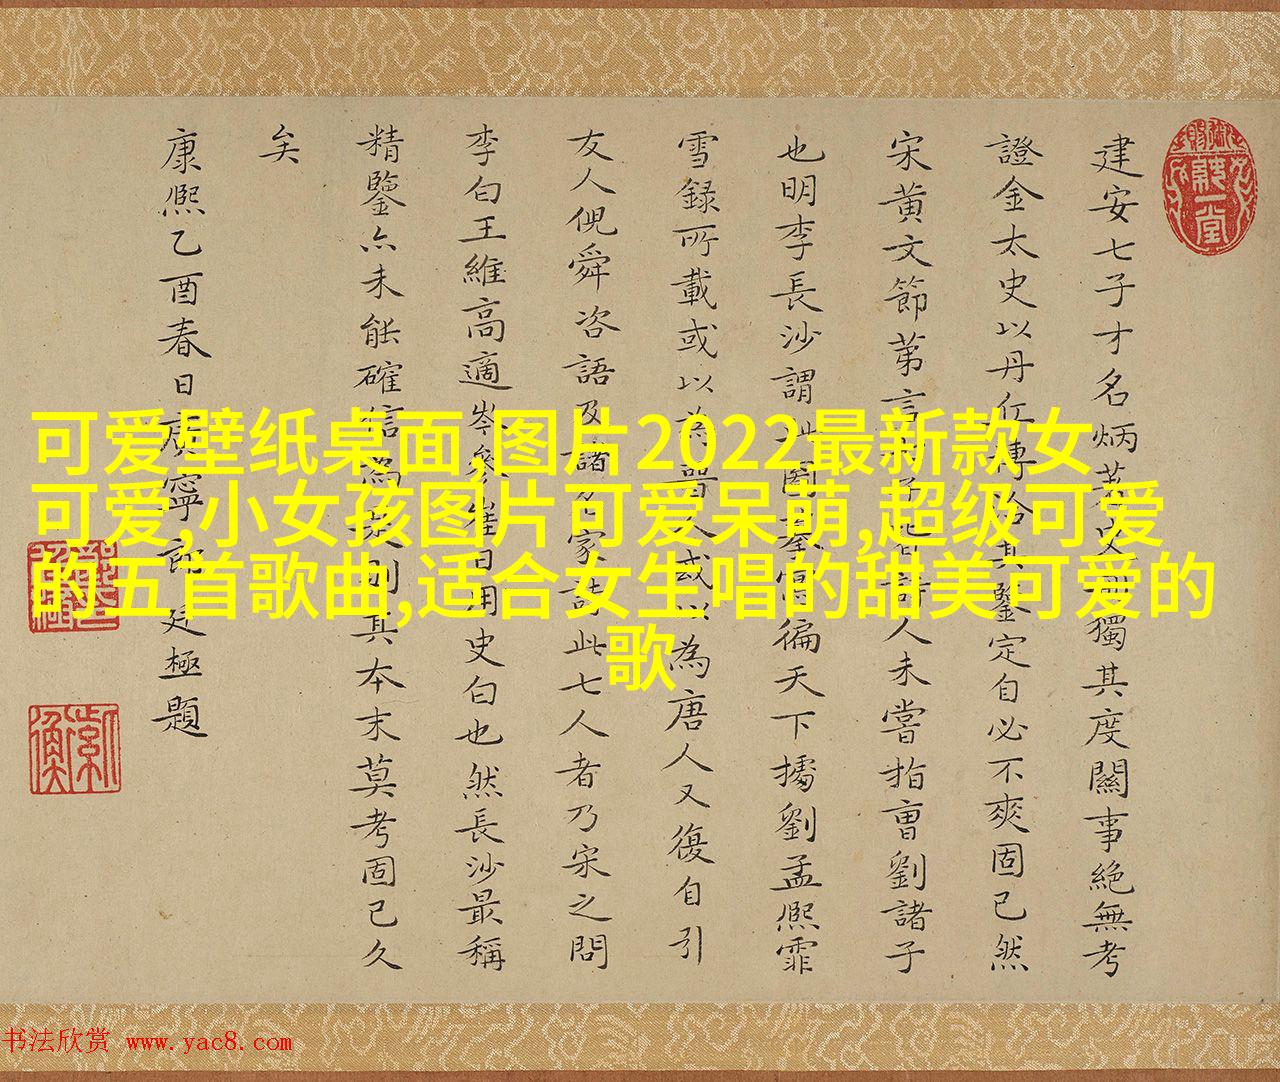 建安七子才名炳著史册獨其度關事絶無考
證金太史以丹丘傳給其鑒定自必不爽固已然
宋黄文節第言
人未嘗指曹劉諸子
也明李長沙謂此圖
徧天下擄劉孟熈霏
雪録所載或以為晉人或以為唐人又復自引
友人倪舜咨語及諸名家詩此七人者乃宋之問
李白王維高適岑參崔
史白也然長沙最稱
精鑒亦未能確信為
真本末莫考固已久
矣
康熈乙酉春日廣寧郎廷極題
可爱壁纸桌面,图片2022最新款女
可爱,小女孩图片可爱呆萌,超级可爱
的五首歌曲,适合女生唱的甜美可爱的
歌
书法欣赏 www.yac8.com